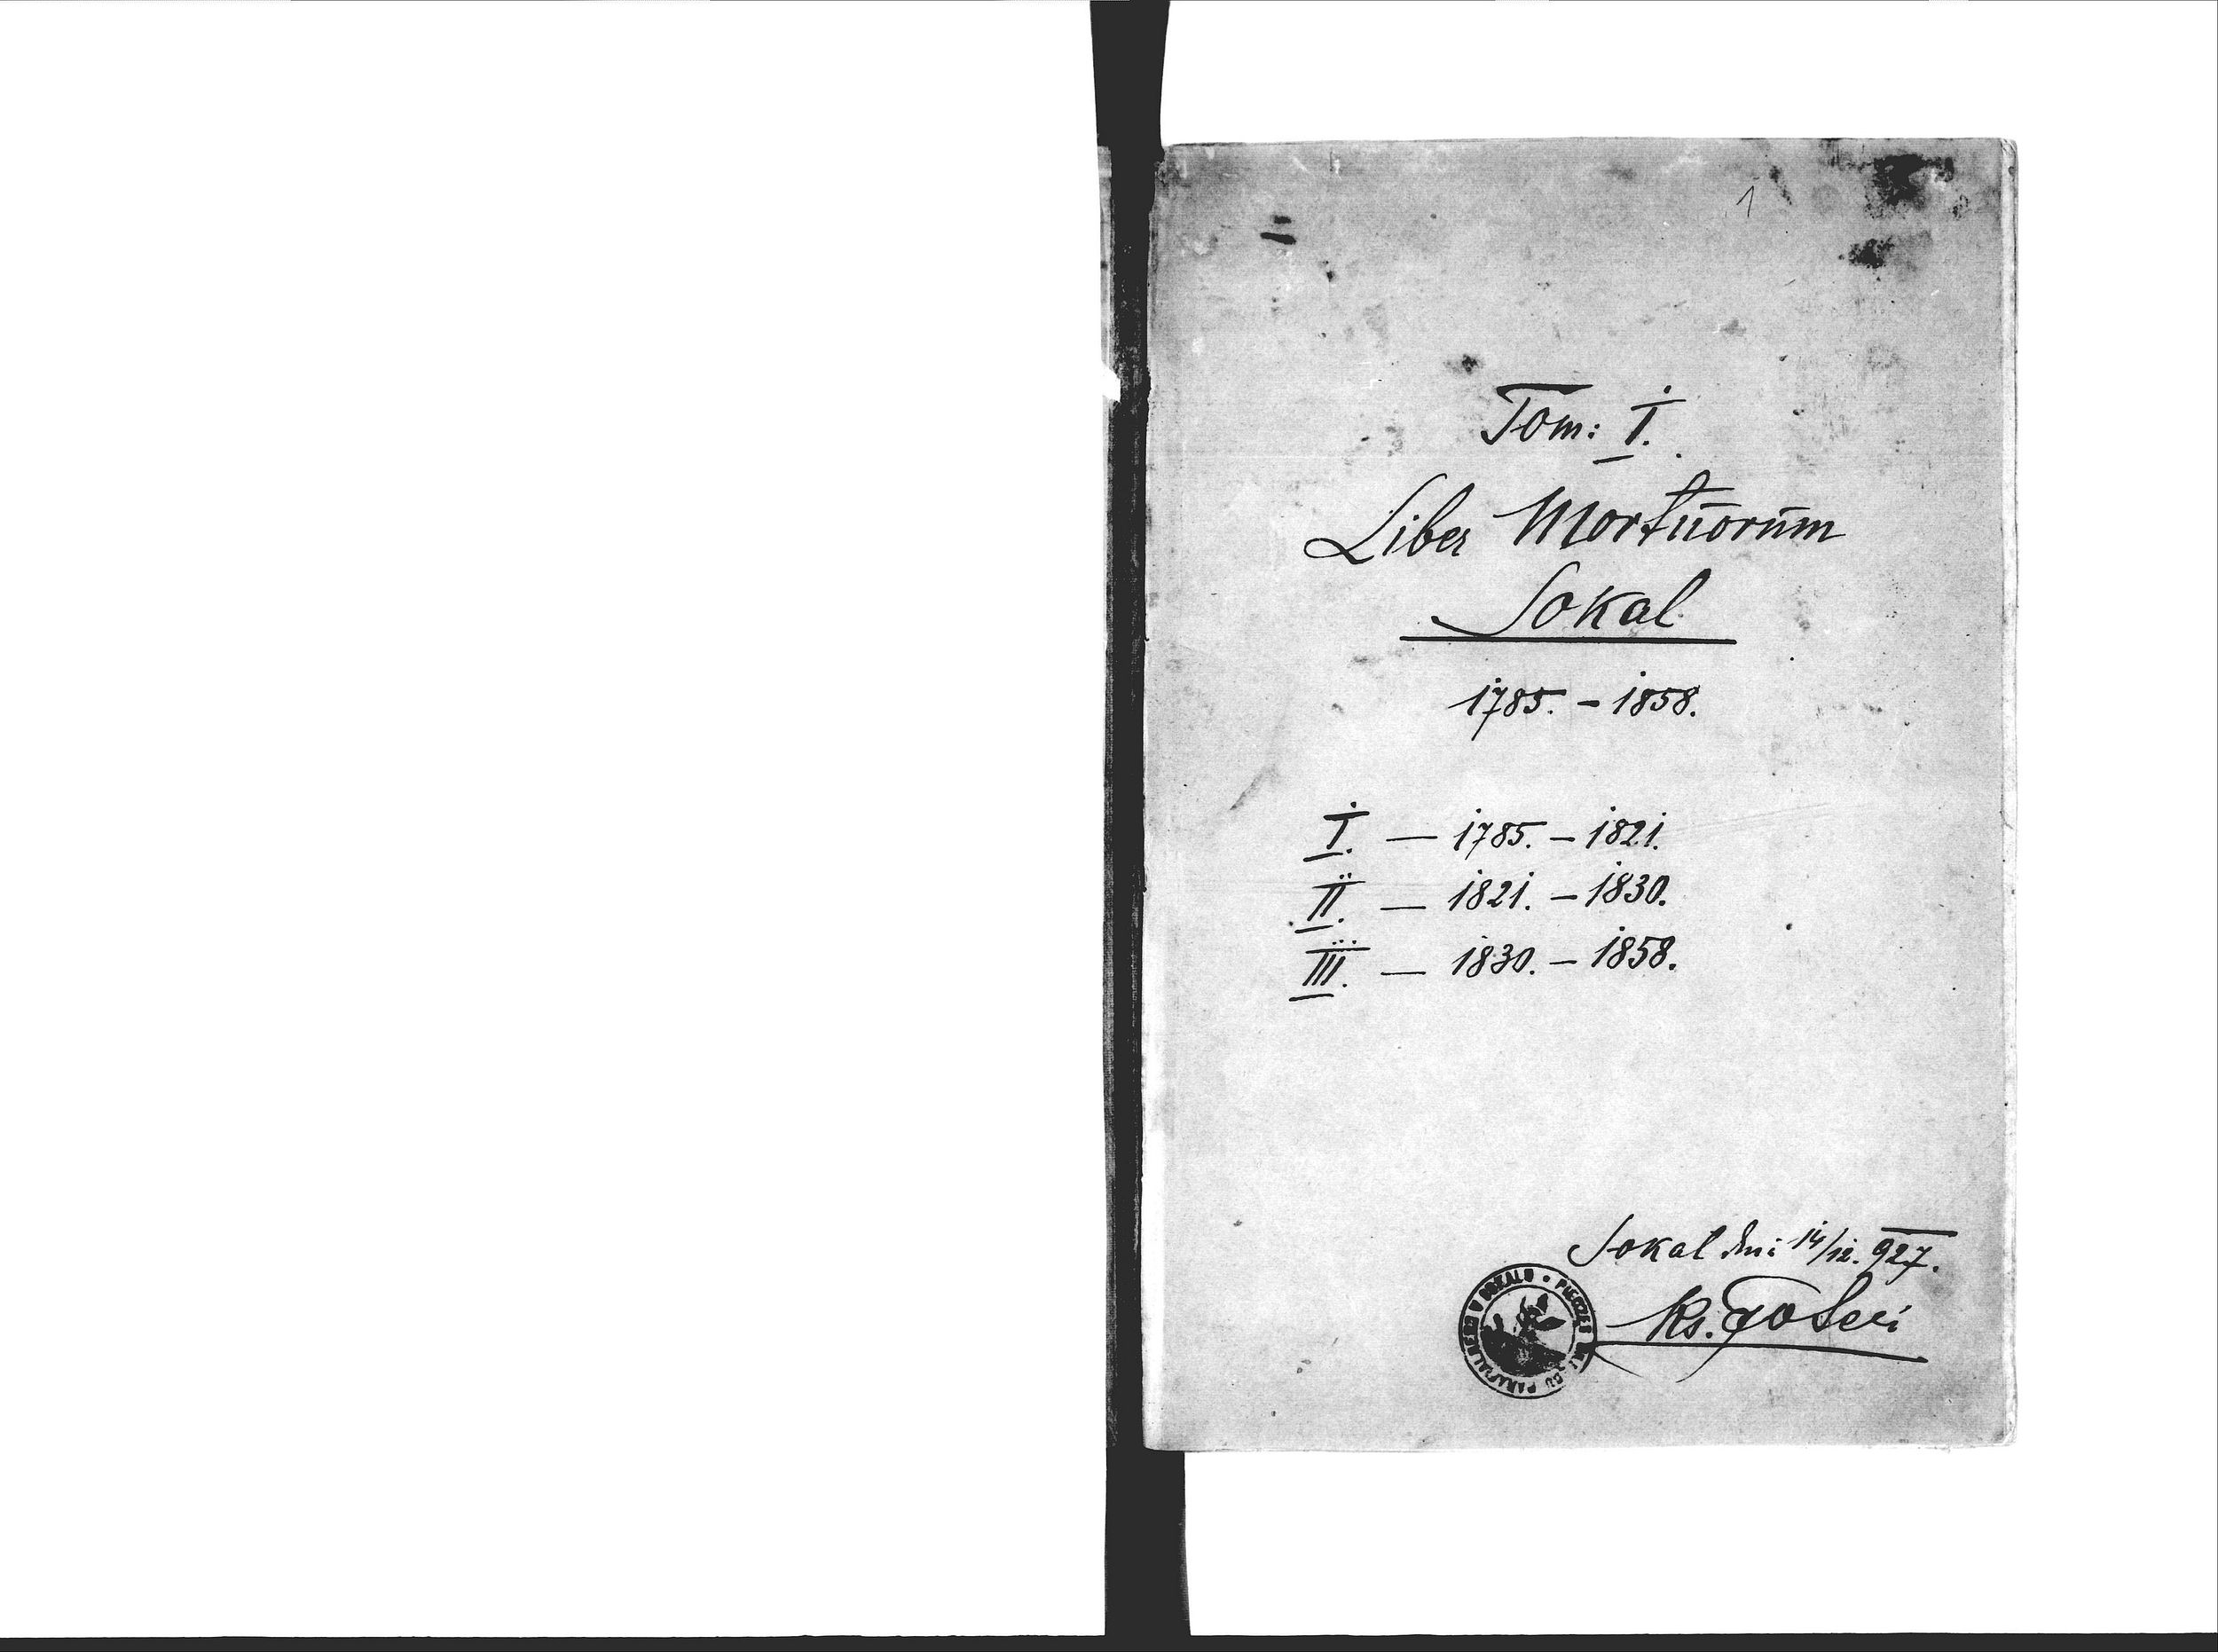 1
Tom: I.
Liber Mortuorum
Sokal
1785. - 1858.
I. — 1785. - 1821.
II. — 1821. - 1830.
III. — 1830. - 1858.
Sokal dni 14/12. 927.
Ks.
PARAFIALNEGO W SOKALU • PIECZĘĆ